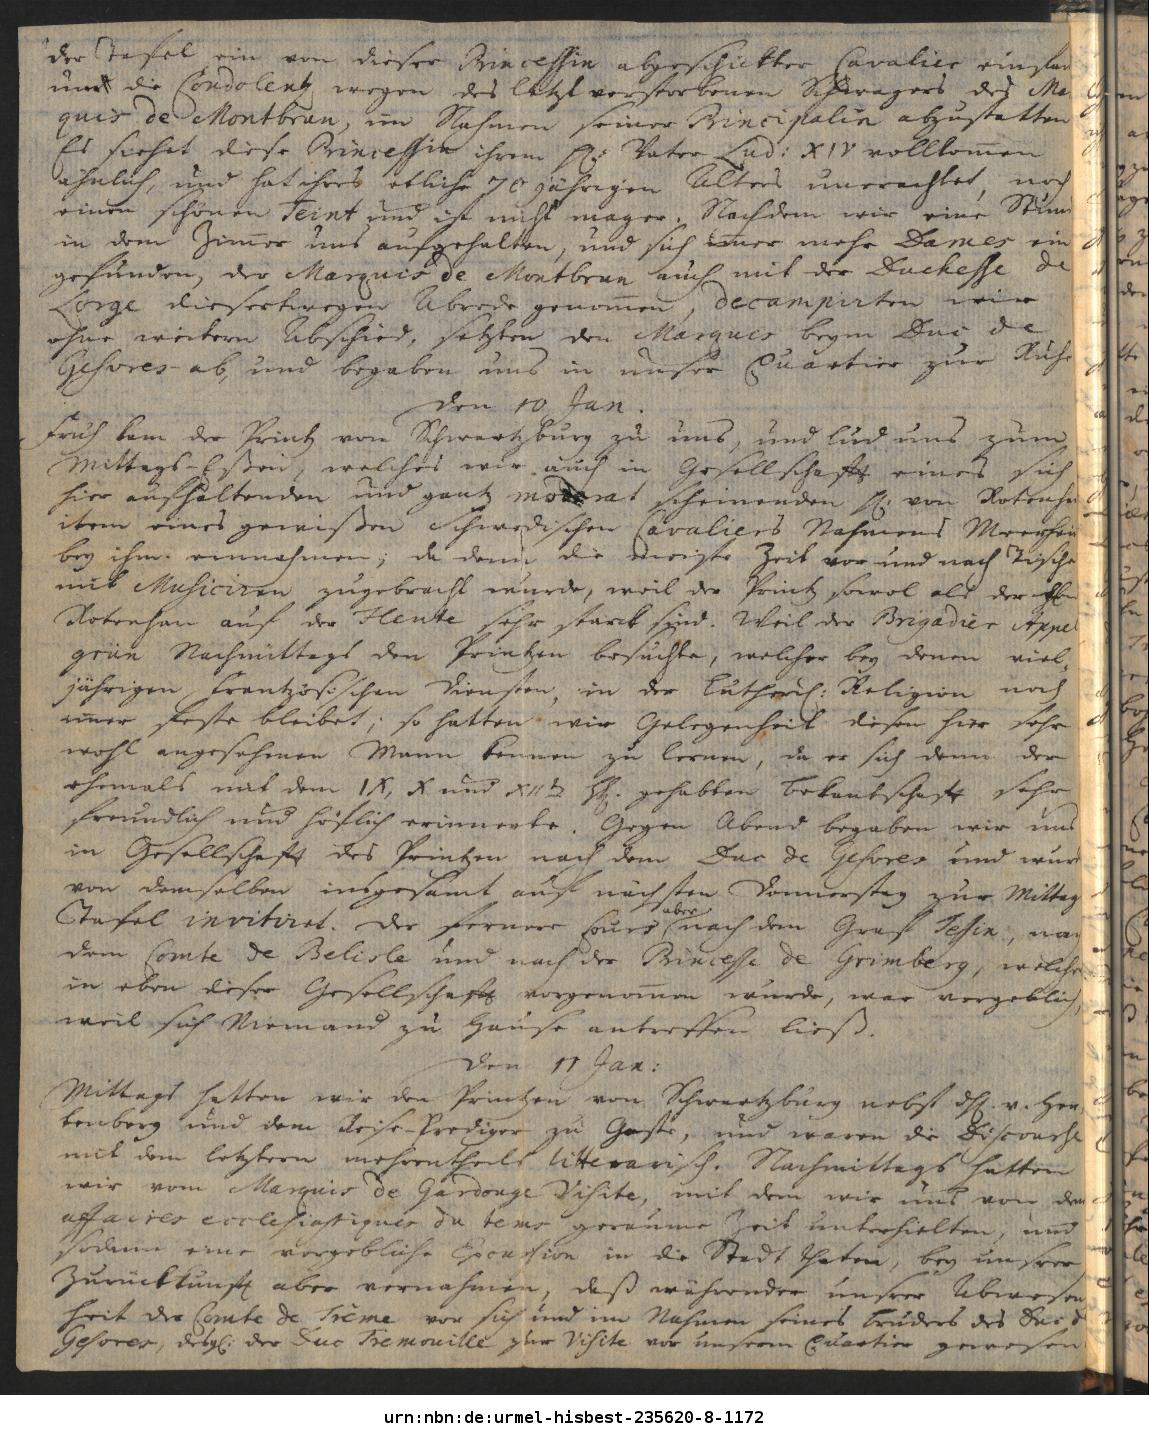 der Tafel ein von dieser Princessin abgeschickter Cavalier
und die Condolentz wegen des letzt verstorbenen Schwagers des Mar
quis de Montbrun, im Nahmen seiner Principalin abzustatten
Es siehet diese Princessin ihrem H: Vater Lud: XIV vollkom̅en
ähnlich, und hat ihres etliche 70 jährigen Alters unerachtet, noch
einen schönen Teint und ist nicht mager. Nachdem wir eine Stund
in dem Zim̅er uns aufgehalten, und sich im̅er mehr Dames ein
gefunden, der Marquis de Montbrun auch mit der Duchesse de
Lorge dieserwegen Abrede genom̅en, decampirten wir
ohne weitern Abschied, setzten den Marquis beym Duc de
Gesvres ab, und begaben uns in unser Quartier zur Ruhe
den 10 Jan.
Früh kam der Printz von Schwartzburg zu uns, und lud uns zum
Mittags-Eßen, welches wir auch in Gesellschafft eines sich
hier aufhaltenden und gantz moderat scheinenden H. von Rotenhan
item eines gewißen Schwedischen Cavaliers Nahmens
bey ihm einnahmen; da denn die meiste Zeit vor und nach Tische
mit Musiciren zugebracht wurde, weil der Printz sowol als der
Rotenhan auf der Fleute sehr starck sind. Weil der Brigadier Appel
grün Nachmittags den Printzen besuchte, welcher bey denen viel-
jährigen Frantzösischen Diensten, in der Lutheris: Religion noch
im̅er feste bleibet; so hatten wir Gelegenheit diesen hier sehr
wohl angesehenen Mann kennen zu lernen, da er sich denn der
ehemals mit dem IX, X und XII H. gehabten bekantschafft sehr
freundlich und höflich erinnerte. Gegen Abend begaben wir uns
in Gesellschafft des Printzen nach dem Duc de Gesvres und wurd
von demselben insgesamt auf nächsten Donnerstag zur Mittag
Tafel invitiret. Der fernere Cours aber nach dem Graf Tessin, nach
dem Comte de Belisle und nach der Princesse de Grimberg, welcher
in eben dieser Gesellschafft vorgenom̅en wurde, war vergeblich,
weil sich Niemand zu Hause antreffen ließ.
den 11 Jan:
Mittags hatten wir den Printzen von Schwartzburg nebst v.
und dem Reise-Prediger zu Gaste, und waren die Discourse
mit dem letztern mehrentheils litterarisch. Nachmittags hatten
wir vom Marquis de Gardouge Visite, mit dem wir uns von den
affaires ecclesiastiques du tems geraume Zeit unterhielten, und
sodann eine vergebliche Excursion in die Stadt thaten, bey unserer
Zurückkunfft aber vernahmen, daß währender unsrer Abwesen
heit der Comte de Trême vor sich und im Nahmen seines Bruders des Duc d
Gesvres, desgl: der Duc Tremouille zur Visite vor unserm Quartier gewesen
urn:nbn:de:urmel-hisbest-235620-8-1172